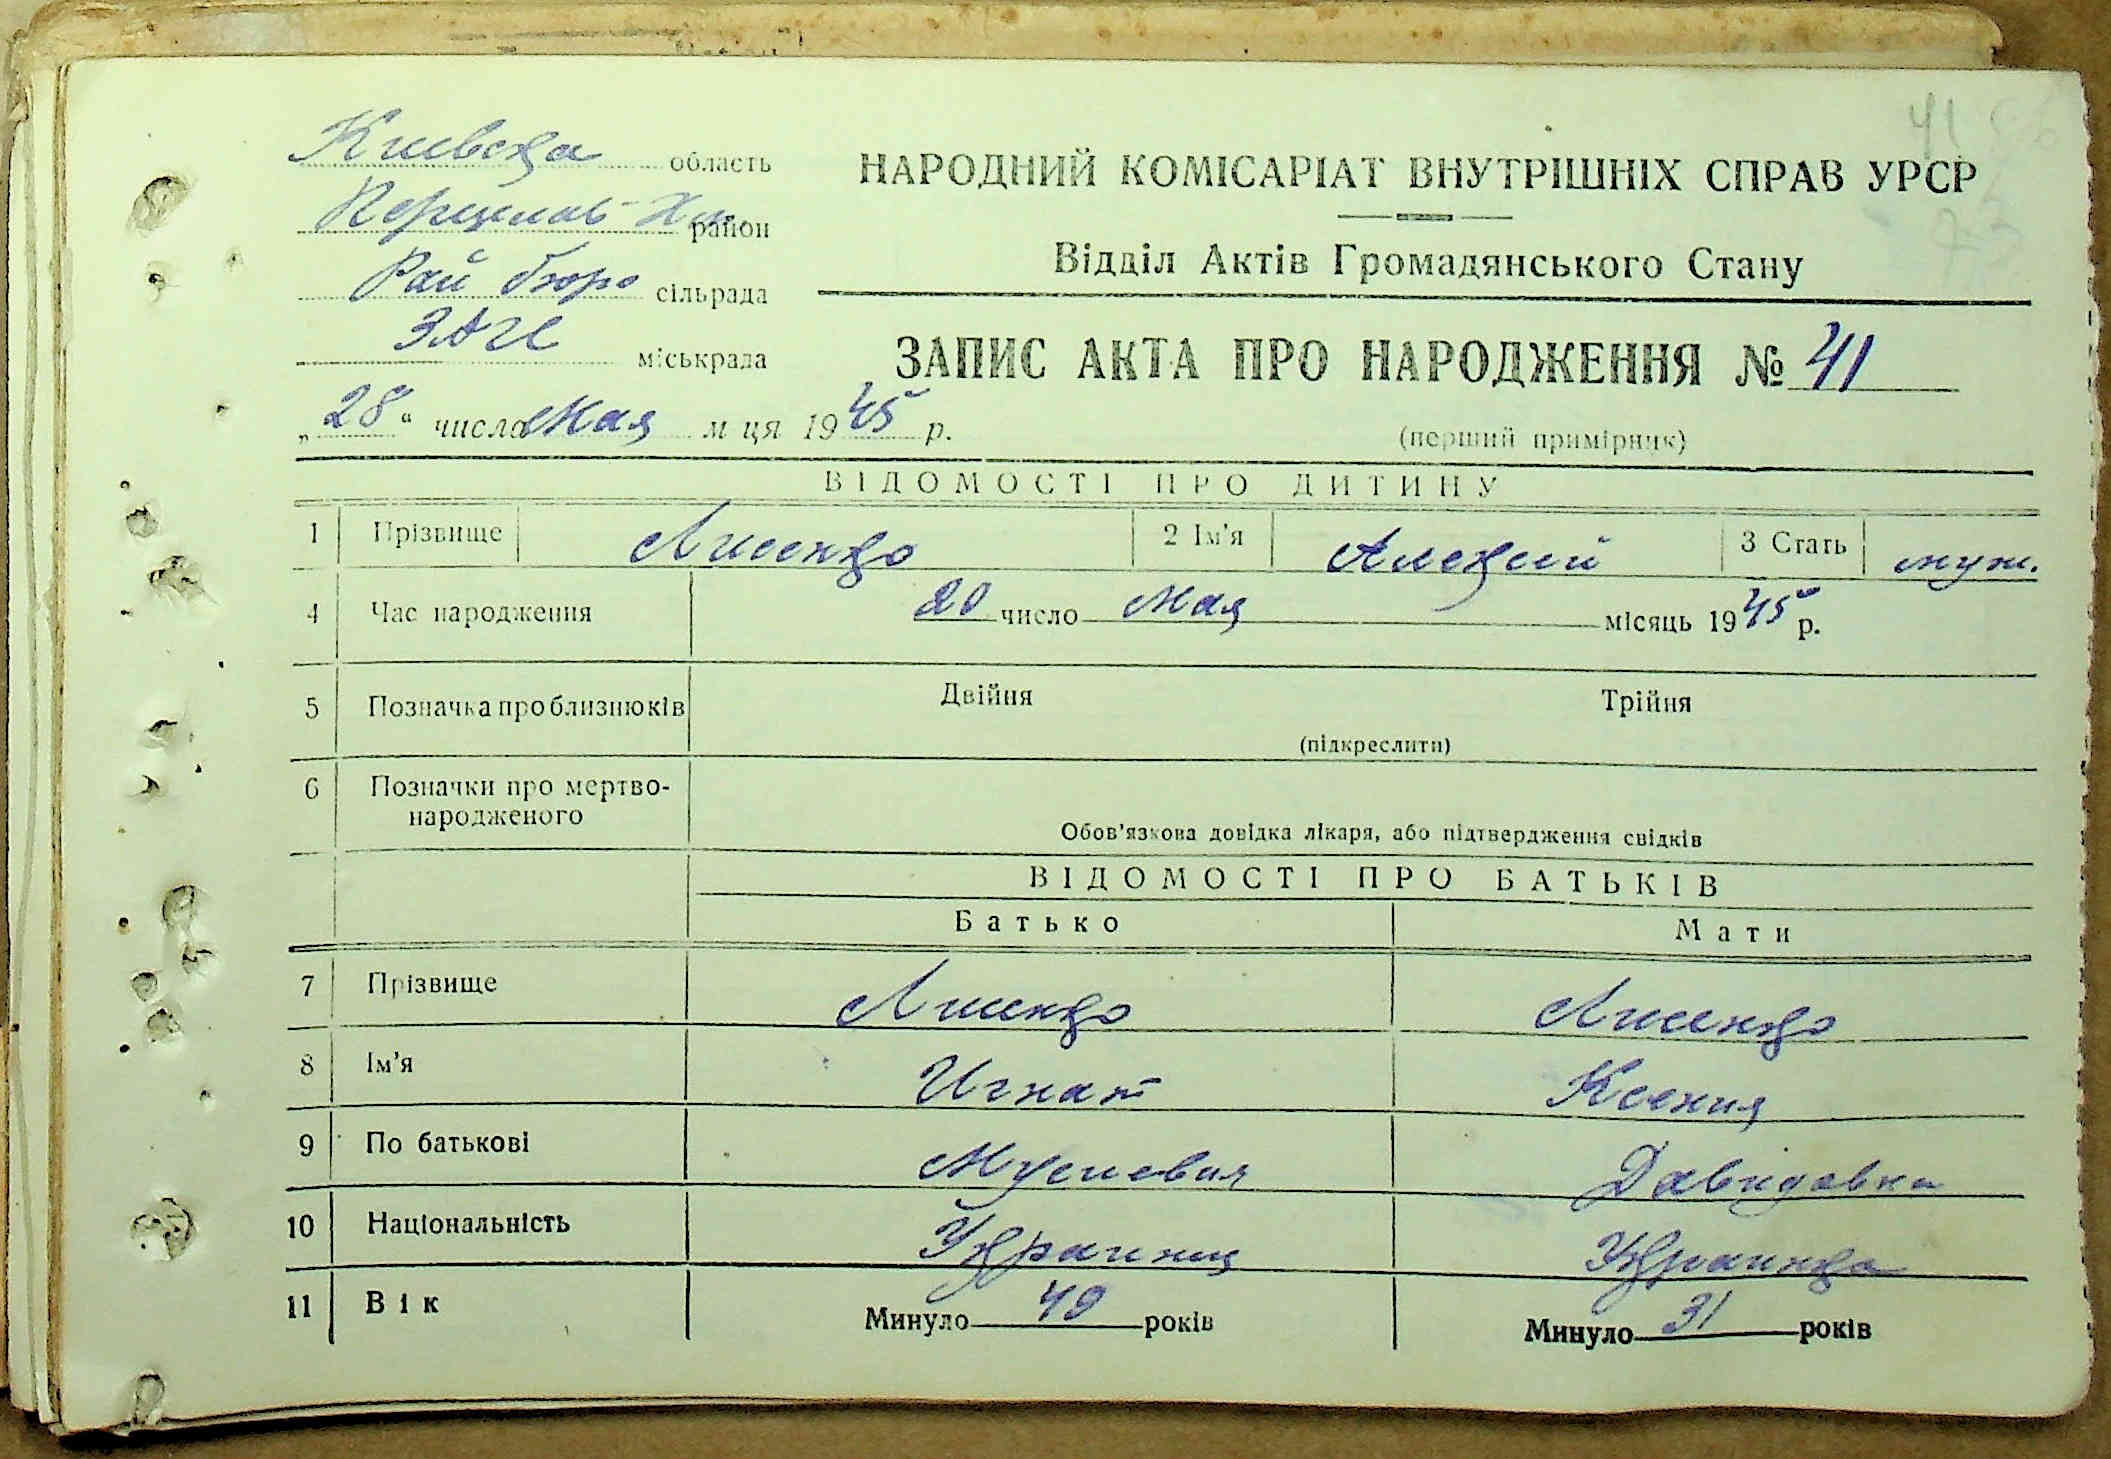 41
Киевска область
Переяслав-Хм. район
Рай бюро сільрада
ЗАГС міськрада
„28“ числа Мая м ця 1945 р.
НАРОДНИЙ КОМІСАРІАТ ВНУТРІШНІХ СПРАВ УРСР
Відділ Актів Громадянського Стану
ЗАПИС АКТА ПРО НАРОДЖЕННЯ № 41
(перший примірник)
ВІДОМОСТІ ПРО ДИТИНУ
1 Прізвище Лисенко 2 Ім'я Алексий 3 Стать муж.
4 Час народження 20 число Мая місяць 1945 р.
5 Позначка про близнюків Двійня Трійня
(підкреслити)
6 Позначки про мертво-
народженого
Обов'язкова довідка лікаря, або підтвердження свідків
ВІДОМОСТІ ПРО БАТЬКІВ
Батько Мати
7 Прізвище Лисенко Лисенко
8 Ім'я Игнат Ксения
9 По батькові Мусиевич Давидовна
10 Національність Украинец Украинка
11 Вік Минуло 49 років Минуло 31 років